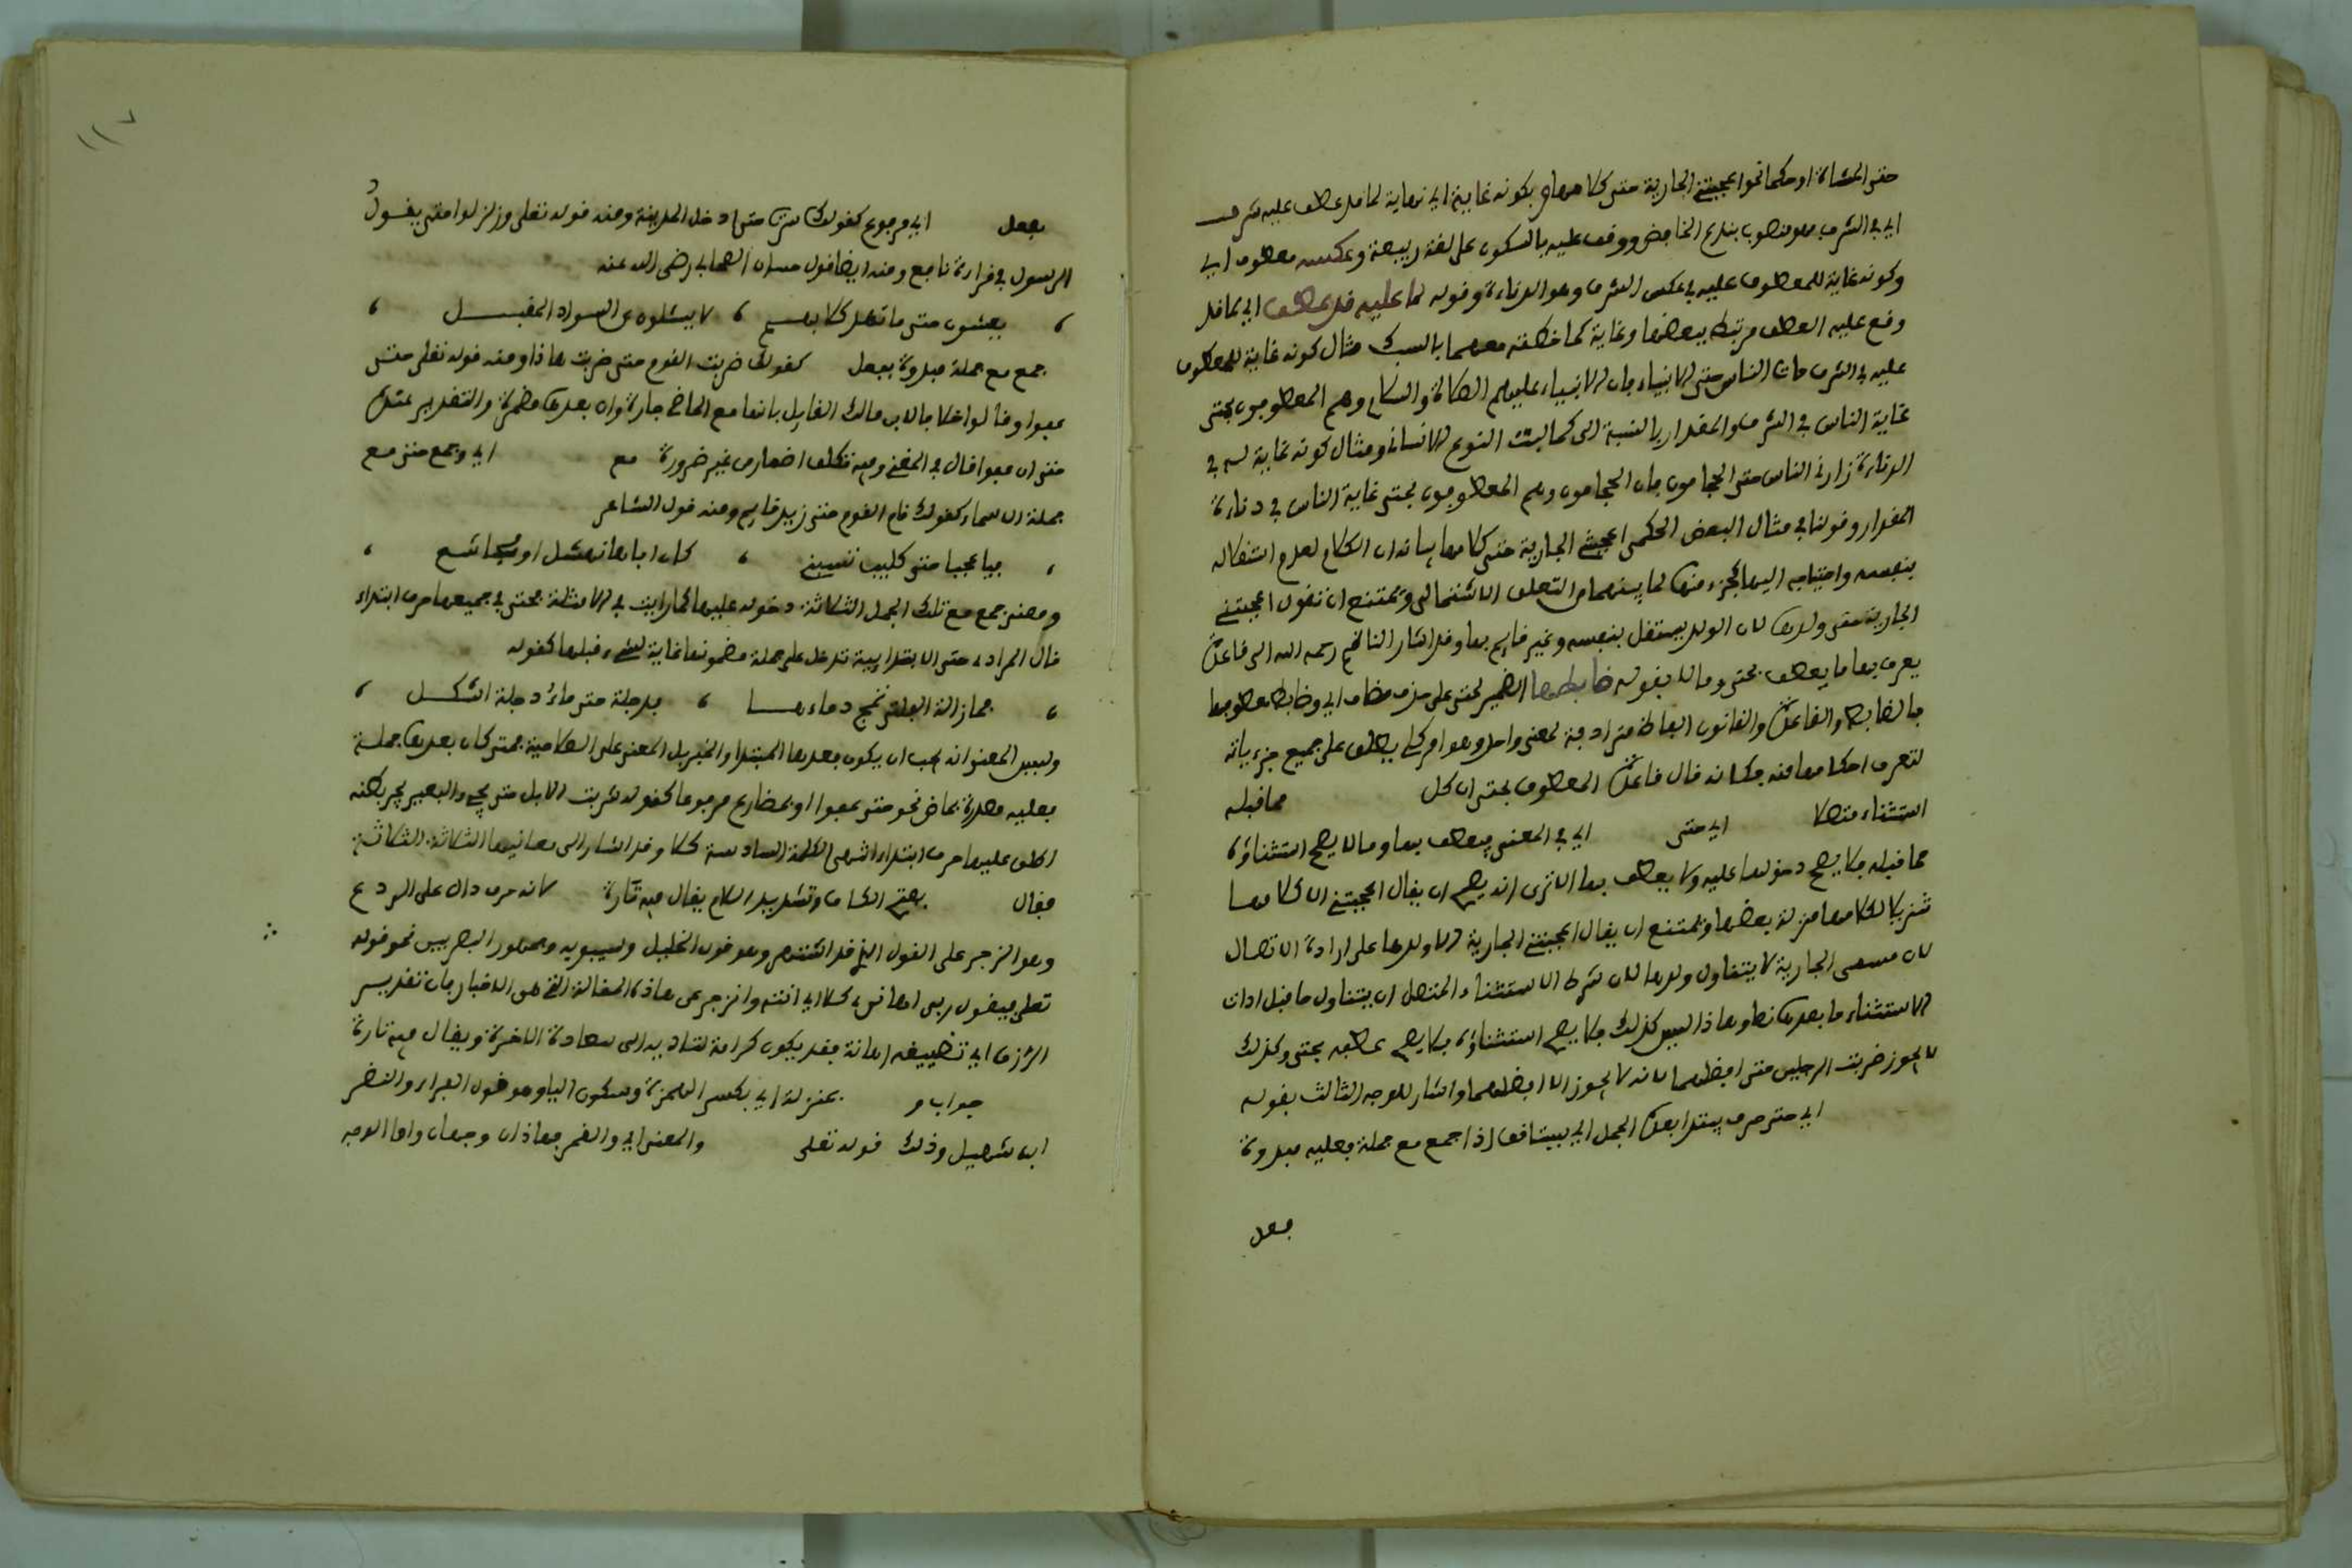 حتى المشاة او حكما نحو اعجبتني الجارية حتى كلامها في بكونه غاية اي نهاية لما قد عطف عليه شرف
اي في الشرف فهو منصوب بنزع الخافض ووقف عليه بالسكون على لغة ربيعة وعكسه معطوف اي
وكونه غاية للمعطوف عليه في عكس الشرف وهو الدناءة وقوله لما عليه قد عطف اي لما قد
وقع عليه العطف مرتبط ببعضها وغاية كما معهما بالسبك مثال كونه غاية للمعطوف
عليه في الشرف مات الناس حتى الانبياء فان الانبياء عليهم الصلاة والسلام وهم المعطوفون بحتى
غاية الناس في الشرف والمقدار بالنسبة الى كمالات النوع الانساني ومثال كونه غاية له في
الدناءة زارني الناس حتى الحجامون فان الحجامون وهم المعطوفون بحتى غاية الناس في دناءة
المقدار وقولنا في مثال البعض الحكمي اعجبتني الجارية حتى كلامها لان الكلام لعدم استقلاله
بنفسه واحتياجه اليها كجزء منها لما بينهما من التعلق الاشتمالي ويمتنع ان تقول اعجبتني
الجارية حتى ولدها لان الولد يستقل بنفسه وغير قايم بها وقد اشار الناظم رحمه الله الى قاعدة
يعرف بها ما يعطف بحتى وما لا بقوله ضابطها الضمير لحتى على حذف مضاف اي وضابط معطوفها
فالضابط والقاعدة والقانون الفاظ مترادفة لمعنى واحد وهو امر كلي يصدق على جميع جزءياته
لتعرف احكامها منه فكانه قال قاعدة المعطوف بحتى ان كل مما قبله
استثناء متصلا اي حتى اي في المعنى يعطف بها وما لا يصح استثناؤه
مما قبله فلا يصح دخولها عليه ولا يعطف بها الا ترى انه يصح ان يقال اعجبتني الا كلامها
تنزيلا لكلامها منزلة بعضها ويمتنع ان يقال اعجبتني الجارية الا ولدها على ارادة الاتصال
لان مسمى الجارية لا يتناول ولدها لان شرط الاستثناء المتصل ان يتناول ما قبل ادات
الاستثناء ما بعدها نطق وهذا ليس كذلك فلا يصح استثناؤه فلا يصح عطفه بحتى وكذلك
لا يجوز ضربت الرجلين حتى افضلهما لانه لا يجوز الا افضلهما واشار للوجه الثالث بقوله
اي حتى حرف يبتدا بعدها الجمل اي يستانف اذا جمع مع جملة فعليه مبدوة
بفعل
١١٧
بفعل اي مرفوع كقولك سرت حتى ادخل المدينة ومنه قوله تعلى وزلزلوا حتى يقول
الرسول في قراءة نافع ومنه ايضا قول حسان الصحابي رضي الله عنه
، يغشون حتى ما تهر كلابهم ، لا يسئلون عن السواد المقبل ،
جمع مع جملة مبدوة بفعل كقولك ضربت القوم حتى ضربت هاذا ومنه قوله تعلى حتى
عفوا وقالوا خلافا لابن مالك القايل بانها مع الماضي جارة وان بعدها مضمرة والتقدير عنده
حتى ان عفوا قال في المغني وفيه تكلف اضمار من غير ضرورة مع اي وجمع حتى مع
جملة الاسماء كقولك قام القوم حتى زيد قايم ومنه قول الشاعر
، فيا عجبا حتى كليب تسبني ، كان اباها نهشل او مجاشع ،
ومعنى جمع مع تلك الجمل الثلاثة دخوله عليها كما رايت في الامثلة فحتى في جميعها حرف ابتداء
قال المرادي حتى الابتدايية تدخل على جملة مضمونها غاية لشيء قبلها كقوله
، فما زالت القتلى تمج دماءها ، بدجلة حتى ماء دجلة اشكل ،
وليس المعنى انه يجب ان يكون بعدها المبتدا والخبر بل المعنى على الصلاحية فمتى كان بعدها جملة
فعليه مصدرة بماض نحو حتى عفوا او بمضارع مرفوعا كقوله شربت الابل حتى يجيء البعير يجر بطنه
اطلق عليها حرف ابتداء انتهى الكلمة السادسة كلا وقد اشار الى معانيها الثلاثة الثلاثة
فقال بفتح الكاف وتشديد اللام يقال فيه تارة لانه حرف دال على الردع
وهو الزجر على القول الذي قد اشتهر وهو قول الخليل وسيبويه وجمهور البصريين نحو قوله
تعلى فيقول ربي اهانني كلا اي انته وانزجر عن هاذه المقالة التي هي الاخبار بان تقدير
الرزق اي تضييقه اهانة فقد يكون كرامة لتاديه الى سعادة الاخرة ويقال فيه تارة
جواب و بمنزلة اي بكسر الهمزة وسكون اليا وهو قول الفراء والنضر
ابن شميل وذلك قوله تعلى والمعنى اي والقمر فهاذان وجهان واما الوجه